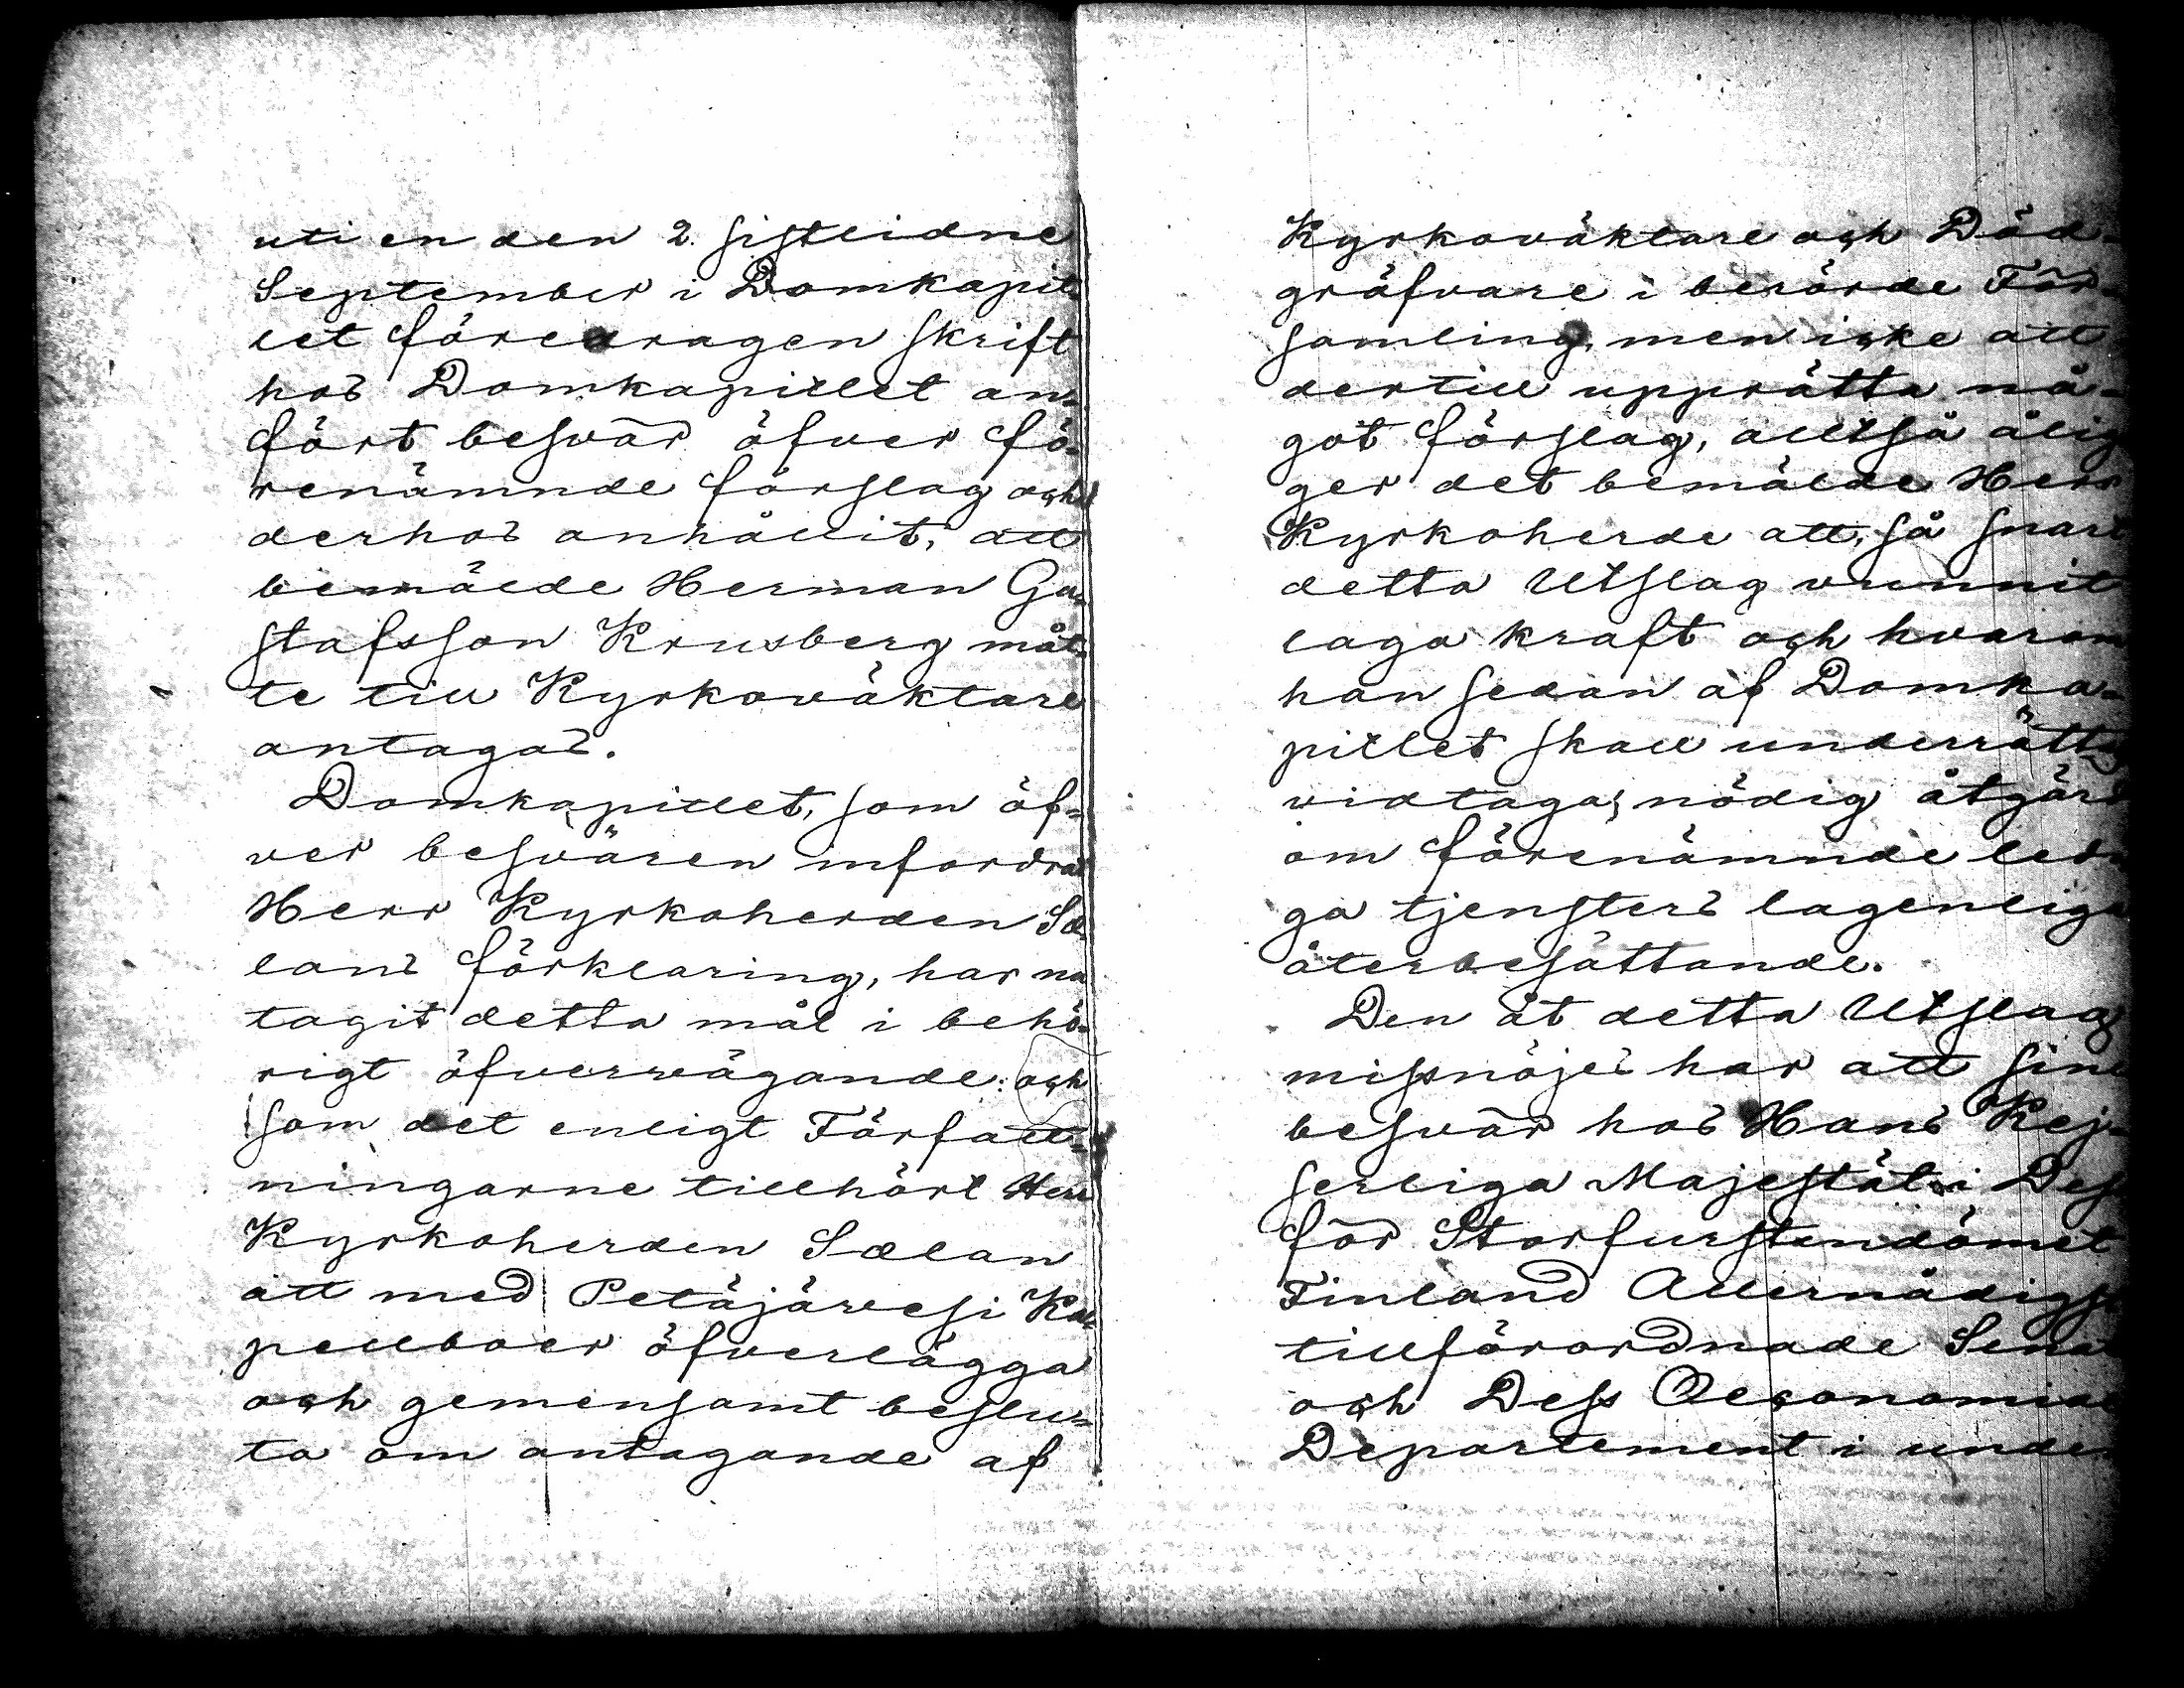 uti en den 2. sistleidne
September i Domkapit-
letföredragen skrift
hos Domkapitlet an-
fört besvär öfver fö-
renämnde förslag och
derhos anhållit, att
bemälde Herman Gu-
stafsson Krusberg måt-
te till Kyrkoväktare
antagas.
Domkapitlet, som öf-
ver besvären infordrat
Herr Kyrkoherden Sæ-
lans förklaring, har nu
tagit detta mål i behö-
rigt öfvervägande: och
som det enligt Författ-
ningarne tillhört Herr
Kyrkoherden Sælan
att med Petäjävesi Ka-
pellboer öfverlägga
och gemensamt beslu-
ta om antagande af
Kyrkoväktare och Död-
gräfvare i berörde För-
samling, men icke att
dertill upprätta nå-
got förslag, alltså ålig
ger det bemälde Herr
Kyrkoherde att, så snart
detta Utslag vunnit
laga kraft och hvarom
han sedan af Domka-
pitlet skall underrättas
vidtaga nödig åtgärd
om förenämnde ledi
ga tjensters lagenliga
återbesättande.
Den åt detta Utslag
missnöjes har att sine
besvär hos Hans Kej-
serliga Majestät i Dess
för Storfurstendömet
Finland Allernådigst
tillförordnade Senat
och Dess Oeconomiae
Departement i under